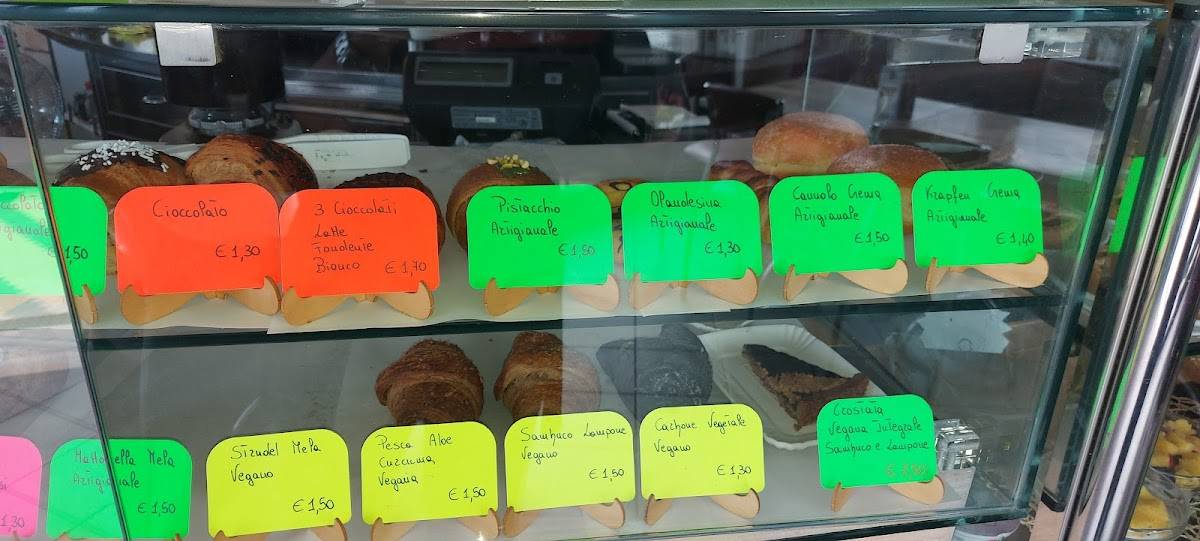 1,50
Cioccolato
€ 1,30
3 Cioccolati
Latte
Fondente
Bianco € 1,70
Pistacchio
Artigianale
€ 1,50
Olandesina
Artigianale
€ 1,30
Cannolo Crema
Artigianale
€ 1,50
Krapfen Crema
Artigianale
€ 1,40
1,30
Mela
Artigianale
€ 1,50
Strudel Mela
Vegano
€ 1,50
Pesca Aloe
Curcuma
Vegana
€ 1,50
Sambuco Lampone
Vegano
€ 1,50
Carbone Vegetale
Vegano
€ 1,30
Crostata
Vegana Integrale
Sambuco e Lampone